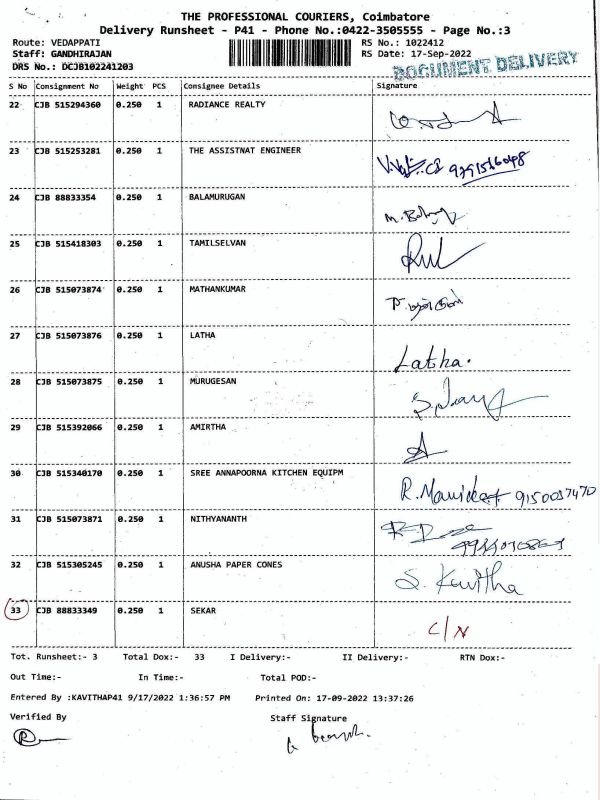 THE PROFESSIONAL COURIERS, Coimbatore
Delivery Runsheet - P41 - Phone No.:0422-3505555 - Page No.:3
Route: VEDAPPATI RS No.: 1022412
Staff: GANDHIRAJAN RS Date: 17-Sep-2022
DRS No.: DCJB102241203
DOCUMENT DELIVERY
S No Consignment No Weight PCS Consignee Details Signature
22 CJB 515294360 0.250 1 RADIANCE REALTY
23 CJB 515253281 0.250 1 THE ASSISTNAT ENGINEER
24 CJB 88833354 0.250 1 BALAMURUGAN
25 CJB 515418303 0.250 1 TAMILSELVAN
26 CJB 515073874 0.250 1 MATHANKUMAR
27 CJB 515073876 0.250 1 LATHA Latha.
28 CJB 515073875 0.250 1 MURUGESAN
29 CJB 515392066 0.250 1 AMIRTHA
30 CJB 515340170 0.250 1 SREE ANNAPOORNA KITCHEN EQUIPM R. 9150037470
31 CJB 515073871 0.250 1 NITHYANANTH
32 CJB 515305245 0.250 1 ANUSHA PAPER CONES S. Kavitha
33 CJB 88833349 0.250 1 SEKAR C/N
Tot. Runsheet:- 3 Total Dox:- 33 I Delivery:- II Delivery:- RTN Dox:-
Out Time:- In Time:- Total POD:-
Entered By :KAVITHAP41 9/17/2022 1:36:57 PM Printed On: 17-09-2022 13:37:26
Verified By Staff Signature